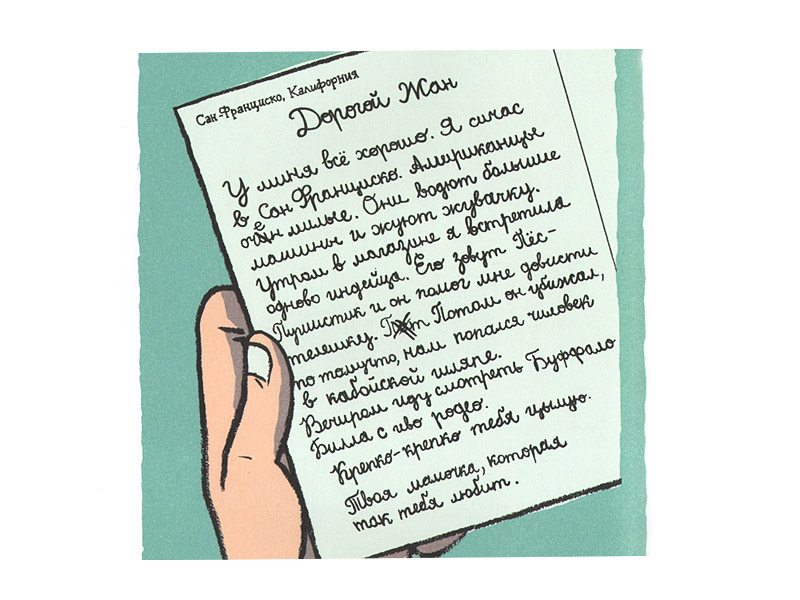 Сан-Франциско, Калифорния
Дорогой Жан
У миня всё хорошо. Я сичас
в Сан Франциско. Американцы
очен милые. Они водют большие
машины и жуют жувачку.
Утрам в магазине я встретила
одново индейца. Его зовут Пёс-
Пушистик и он помог мне довисти
телешку. Потом он убижал,
по томучто, нам попался чиловек
в кабойской шляпе.
Вечирам иду смотреть Буффало
Билла с иво родео.
Крепко-крепко тебя цылую.
Твоя мамочка, которая
так тебя любит.